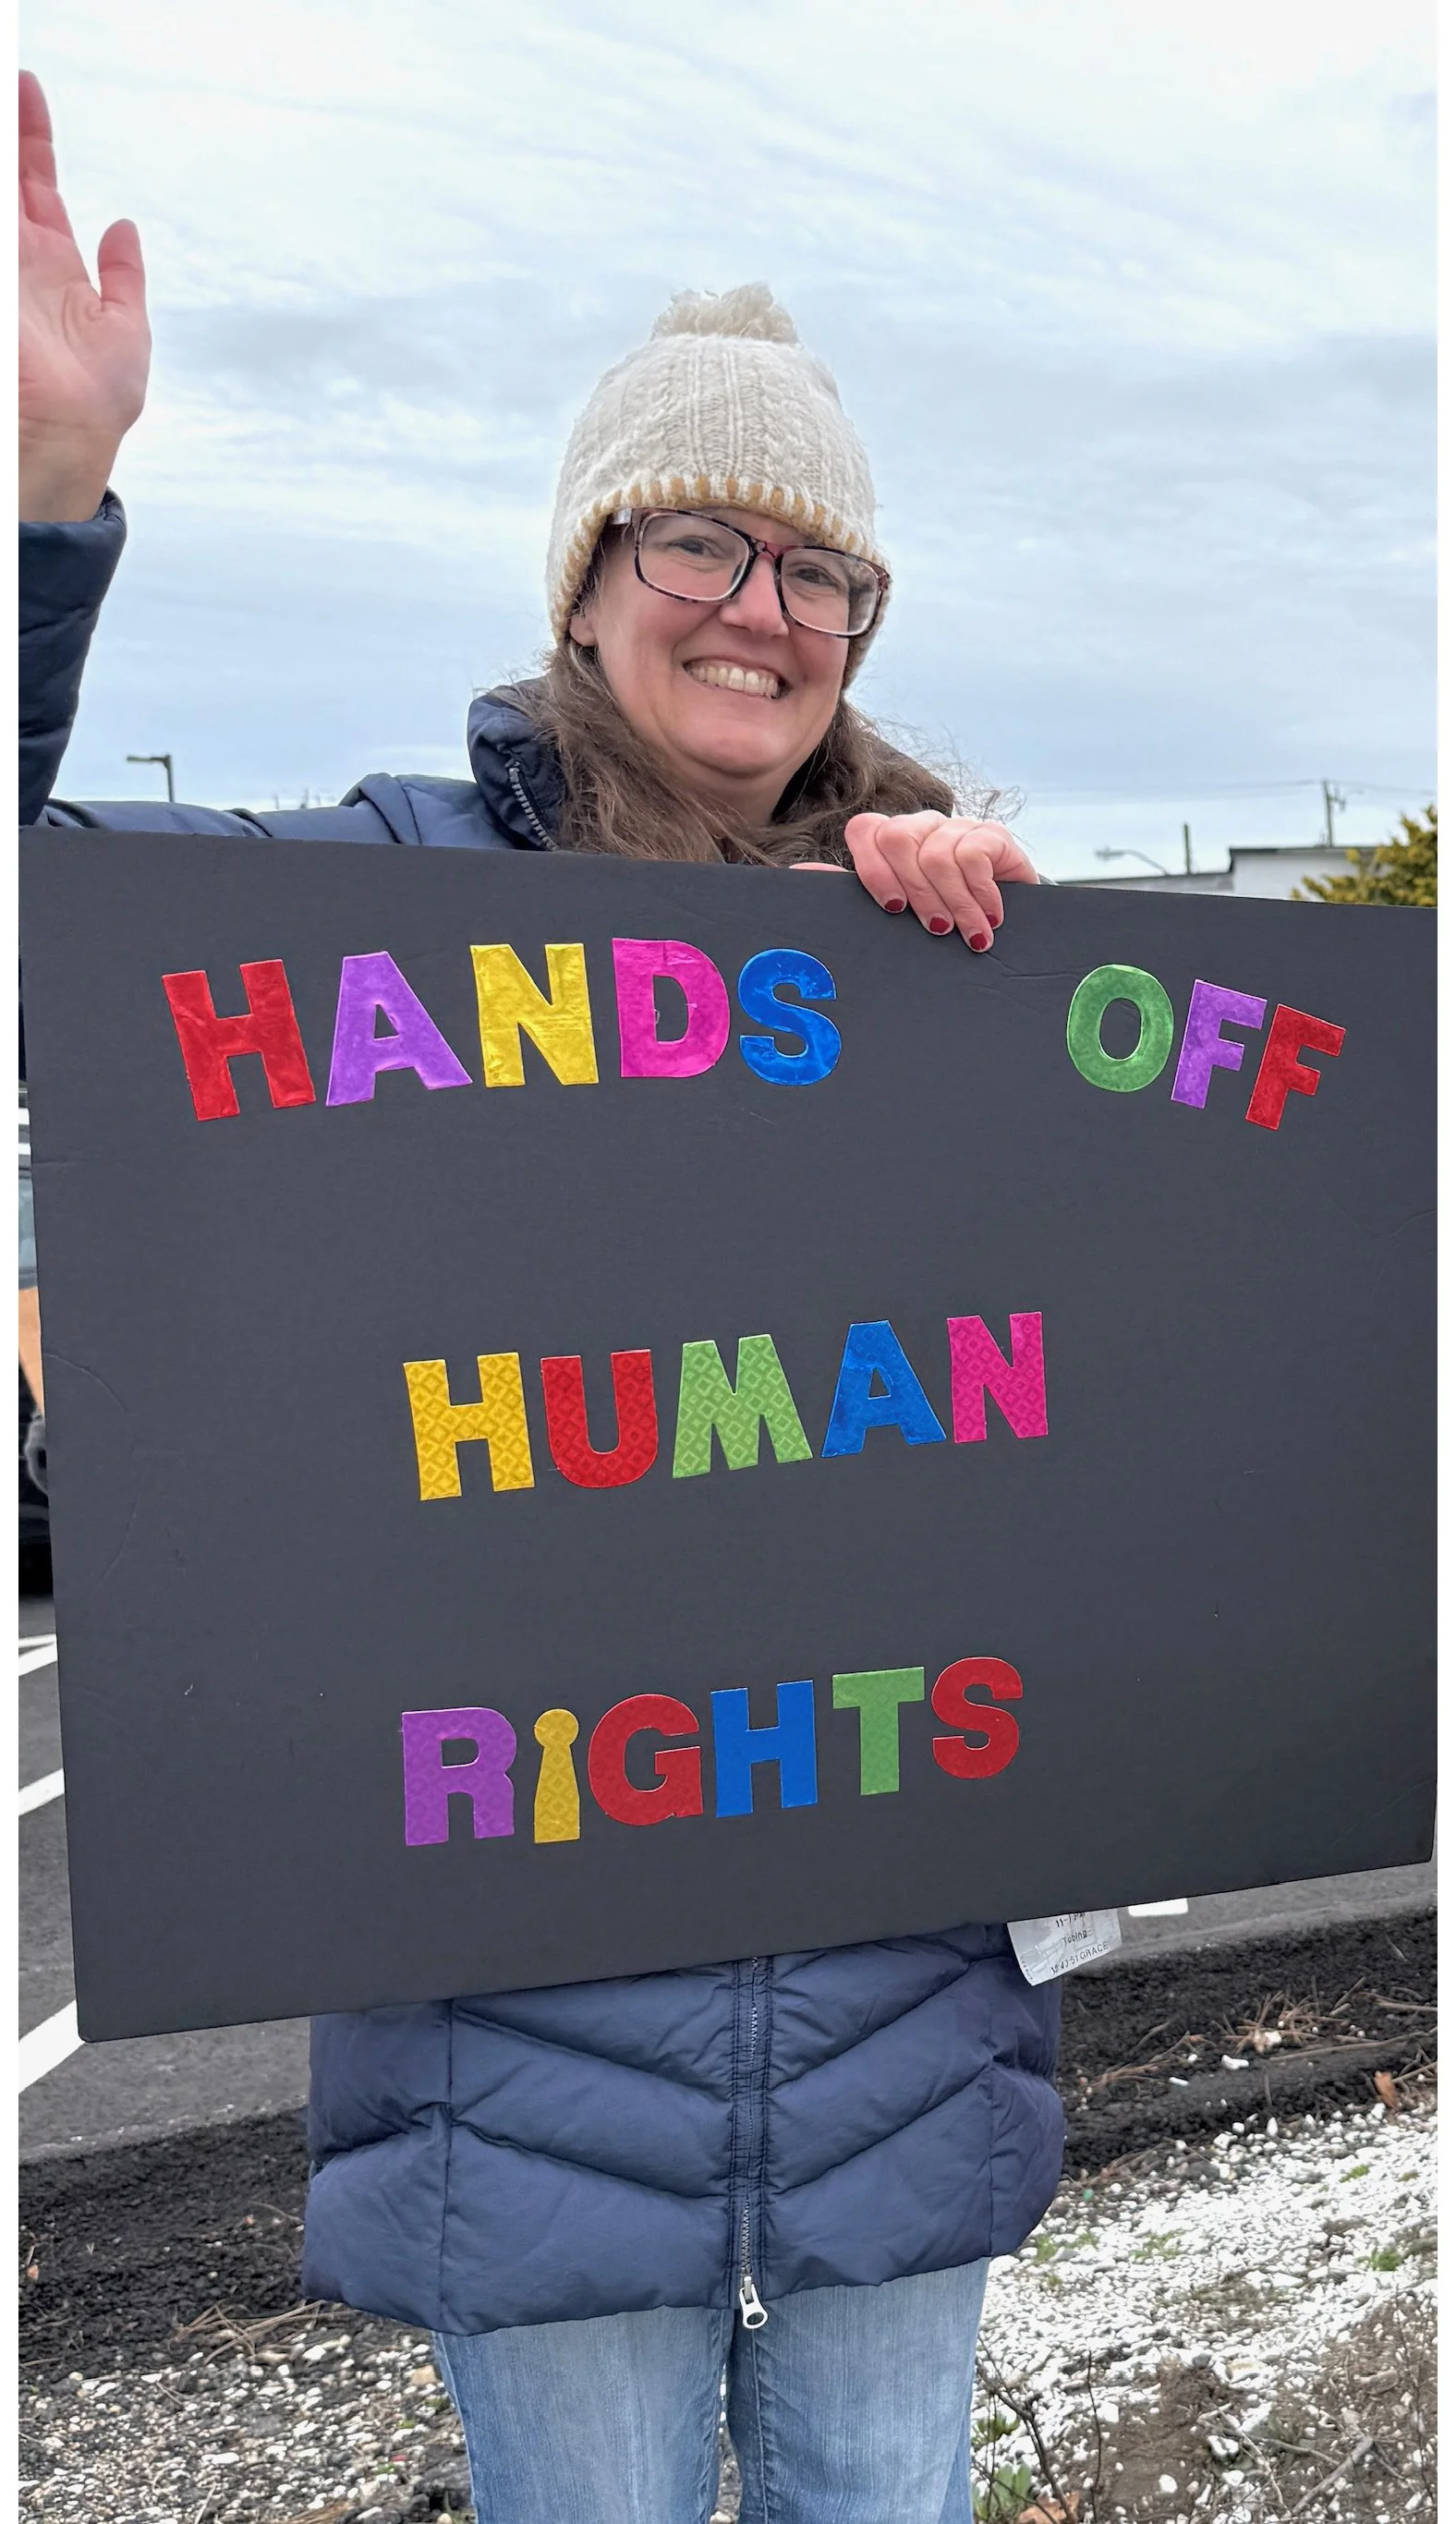 HANDS OFF
HUMAN
RiGHTS
Tubing
GRACE